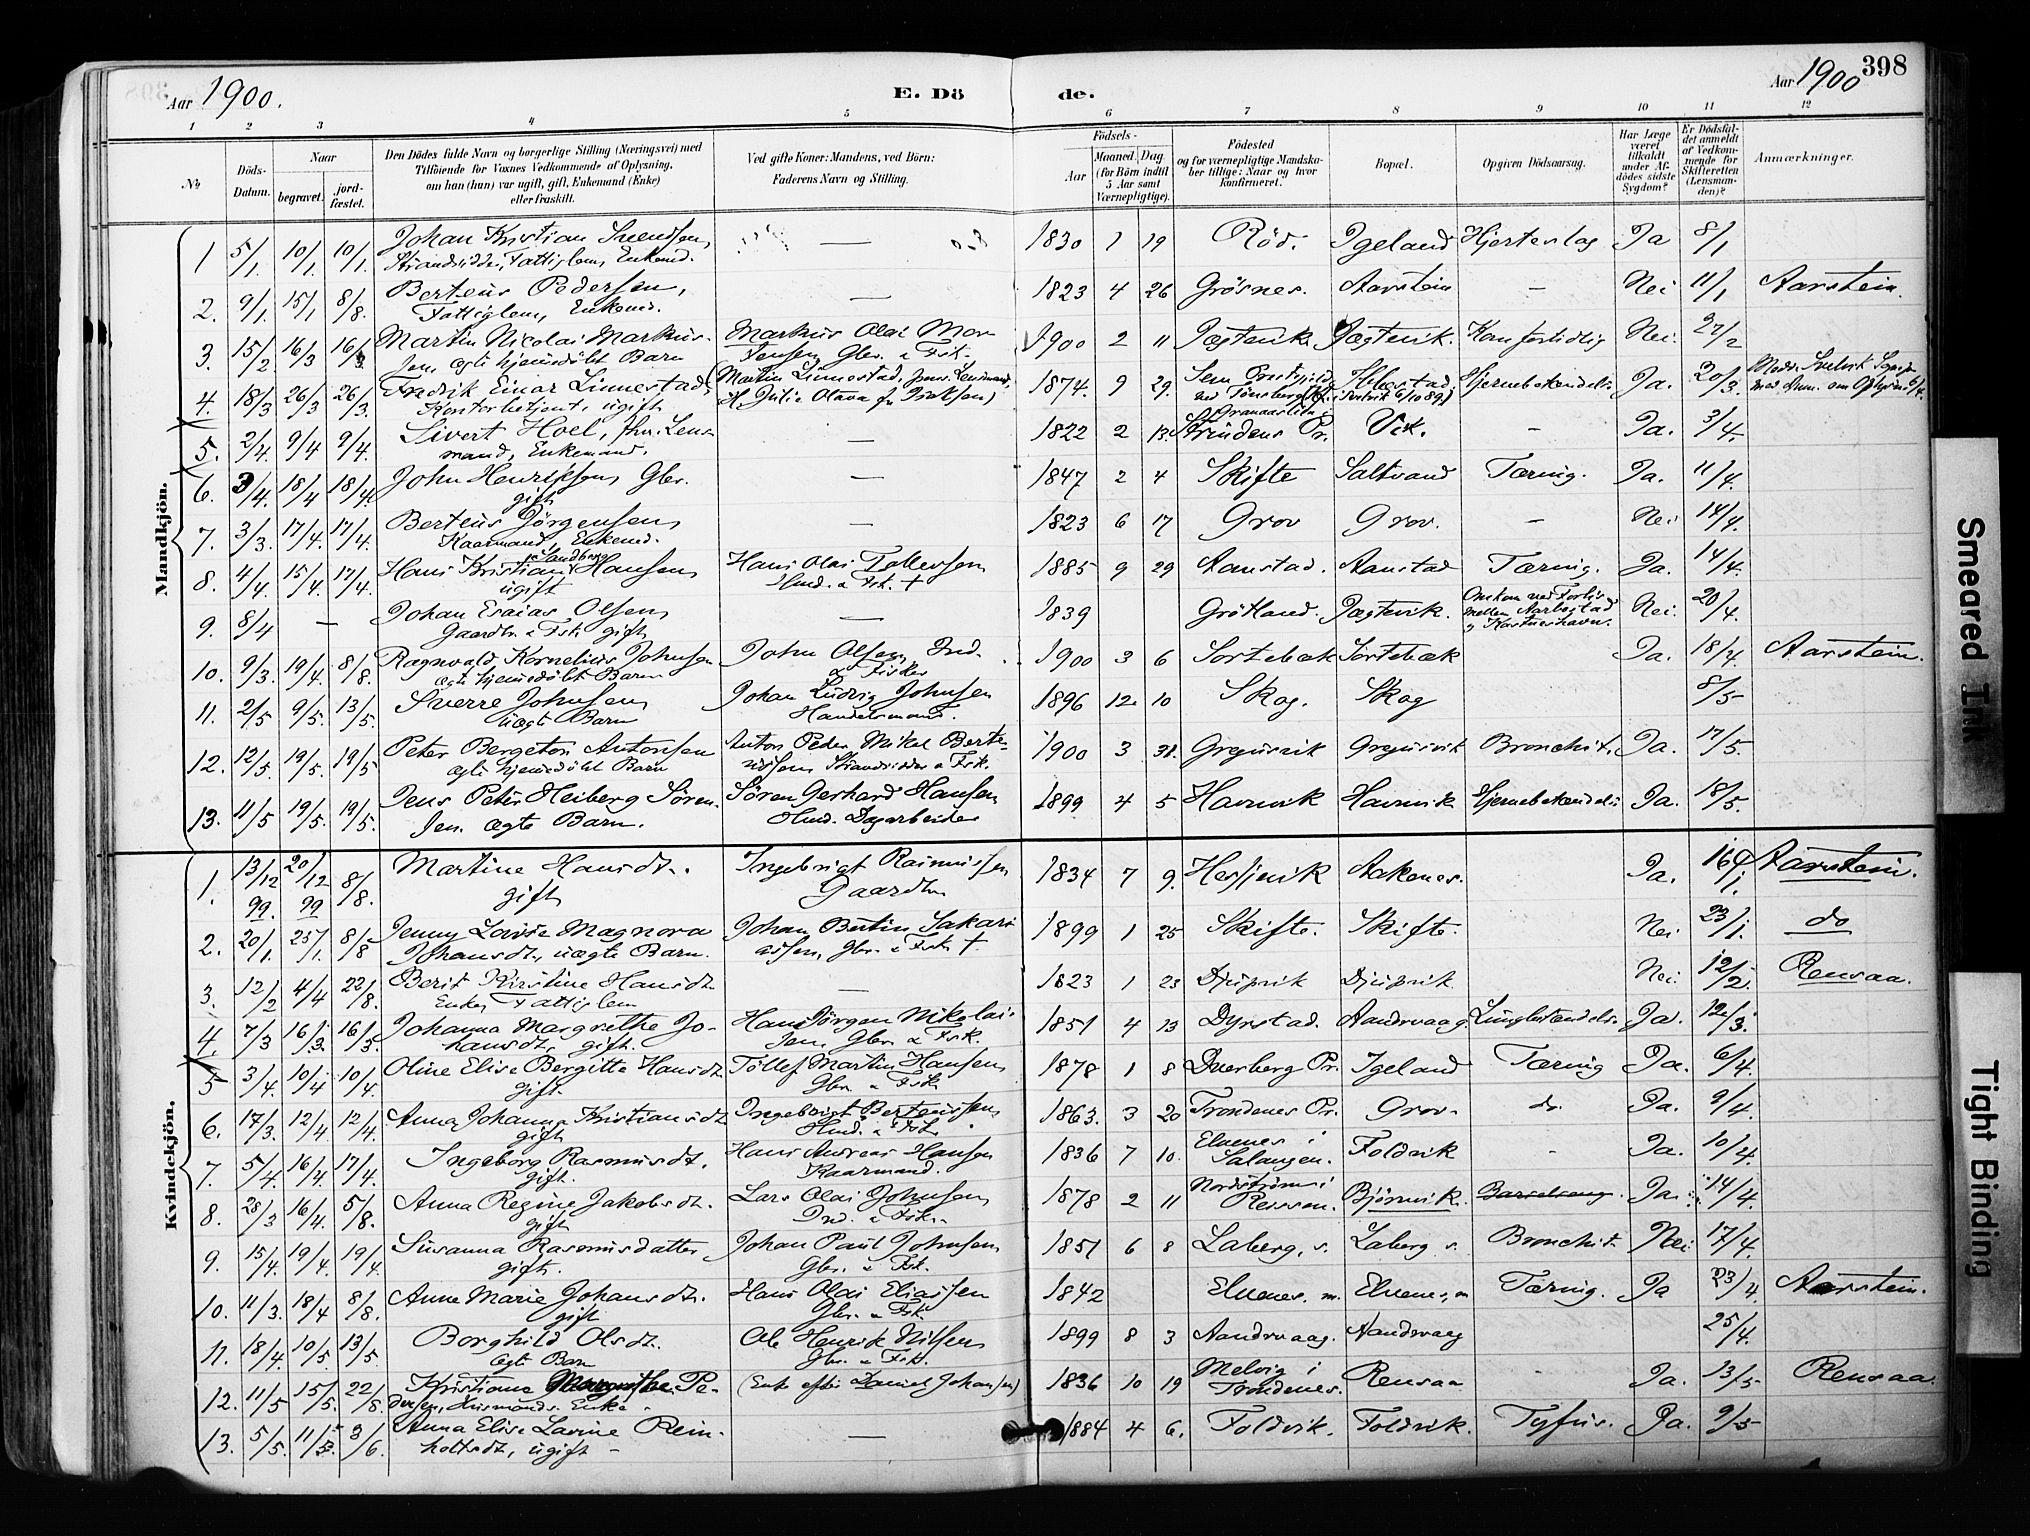 Aar 1900. E. Dö de. Aar 1900 398
1 2 3 4 5 6 7 8 9 10 11 12
№
Döds-Datum.
Naar
begravet. jordfæstet.
Den Dödes fulde Navn og borgerlige Stilling (Næringsvei) med
Tilföiende for Voxnes Vedkommende af Oplysning,
om han (hun) var ugift, gift, Enkemand (Enke)
eller fraskilt.
Ved gifte Koner: Mandens, ved Börn:
Faderens Navn og Stilling.
Födsels-
Aar Maaned. Dag
(for Börn indtil
5 Aar samt
Værnepligtige).
Födested
og for værnepligtige Mandskaber tillige: Naar og hvor
konfirmeret.
Bopæl.
Opgiven Dödsaarsag.
Har Læge
været
tilkaldt
under Afdödes sidste
Sygdom?
Er Dödsfaldet anmeldt
af Vedkommende for
Skifteretten
(Lensmanden)?
Anmærkninger.
Mandkjön.
1 5/1. 10/1. 10/1. Johan Kristian Svendsen, — 1830 1 19 Röd. Igeland Hjerteslag Ja 8/1
Strandsidder, Fattiglem, Enkemd.
2. 9/1. 15/1 8/8. Berteus Pedersen, — 1823 4 26 Grösnes. Aarstein — Nei 11/1 Aarstein.
Fattiglem, Enkemd.
3. 15/2 16/3 16/3. Martin Nicolai Markus- Markus Olai Mor- 1900 2 11 Jægtevik Jægtevik. Kom fortidlig Nei. 27/2
sen ægte hjemmedöbt Barn tensen Gbr. & Fisk.
4. 18/3 26/3 26/3. Fredrik Einar Linnestad, (Martin Linnestad, Lensmand, 1874. 9 29. Sem Præstegjeld Ibbestad, Hjernebetændelse Ja. 20/3.
Kontorbetjent, ugift H. Julie Olava ved Tönsberg
5. 2/4. 9/4 9/4. Sivert Hoel, fhv. Lens- — 1822 2 13. Strindens Pr. Vik. — Ja. 3/4.
mand, Enkemand.
6. 3/4. 18/4 18/4. John Henriksen Gbr. — 1847 2 4 Skifte Saltvand Tæring. Ja. 11/4.
gift
7. 3/3. 17/4. 17/4. Berteus Jörgensen, — 1823 6 17 Grov Grov. — Nei 14/4.
Kaarmand, Enkemd.
8. 4/4. 15/4. 17/4. Hans Kristian Sandberg Hansen, Hans Olai Tollefsen 1885 9 29 Aanstad. Aanstad Tæring. Ja. 14/4.
ugift Hmd. & Fsk. †
9. 8/4 — Johan Esaias Olsen, — 1839 Grötland. Jægtevik. Omkom ved Forlis Nei. 20/4.
Gaardbr. & Fsk. gift mellem
10. 9/3. 19/4. 8/8. Ragnvald Kornelius Johnsen John Olsen, Ind. 1900 3 6 Sortebæk Sortebæk Ja. 18/4. Aarstein.
ægte hjemmedöbt Barn & Fisker
11. 2/5. 9/5. 13/5. Sverre Johnsen, Johan Ludvig Johnsen 1896 12 10 Skog. Skog 8/5
uægte Barn Handelsmand.
12. 12/5. 19/5. 19/5 Peter Bergeton Antonsen Anton Peder Mikal Berte- 1900 3 31. Gregusvik Gregusvik Bronchit. Ja. 17/5
ægte hjemmedöbt Barn ussen Strandsidder & Fsk.
13. 11/5 19/5. 19/5. Jens Peter Heiberg Sören- Sören Gerhard Hansen 1899 4 5 Havnvik Havnvik Hjernebetændelse Ja. 18/5.
sen. ægte Barn. Hmd. Dagarbeider
Kvindekjön.
1. 13/12 99. 20/12 99 8/8. Martine Hansdt. Ingebrigt Rasmussen 1834 7 9. Hesjevik Aakenes. Ja. 16/1. Aarstein.
gift Gaardbr.
2. 20/1. 25/1. 8/8 Jenny Lovise Magnora Johan Bertin Sakari- 1899 1 25 Skifte. Skifte. Nei 23/1. do
Johansdt., uægte Barn. assen, Gbr. & Fsk †
3. 12/2 4/4 22/8. Berit Kirstine Hansdt — 1823 1 23 Djupvik Djupvik Nei. 12/2. Rensaa.
Enke, Fattiglem
4. 7/3 16/3 16/3. Johanna Margrethe Jo- Hans Jörgen Nikolai- 1851 4 13 Dyrstad. Aandsvaag. Lungebetændelse. Ja. 12/3.
hansdt, gift. sen, Gbr. & Fsk.
5 3/4. 10/4 10/4. Oline Elise Bergitte Hansdt Töllef Martin Hansen, 1878 1 8 Dverberg Pr. Igeland Tæring Ja. 6/4.
gift. Gbr. & Fsk
6. 17/3. 12/4 12/4. Anna Johanna Kristiansdt Ingebrigt Berteussen, 1863. 3 20 Trondenes Pr. Grov. do. Ja. 9/4.
gift Hmd. & Fsk.
7. 5/4. 16/4. 17/4. Ingeborg Rasmusdt. Hans Andreas Hansen 1836 7 10. Elvenes i Foldvik - Ja. 10/4.
gift. Kaarmand. Salangen.
8. 28/3 16/4. 5/8. Anna Regine Jakobsdt. Lars Olai Johnsen 1878 2 11 Nordströmen i Bjørnvik. Barselseng. Ja. 14/4.
gift Ind. & Fsk. Reissen.
9. 15/4. 19/4. 19/4. Susanna Rasmusdatter Johan Paul Johnsen, 1851 6 8 Laberg, s. Laberg s. Bronchit. Nei 17/4.
gift. Gbr. & Fsk.
10. 11/3. 18/4 8/8. Anne Marie Johansdt. Hans Olai Eliassen 1842 Elvenes, m. Elvenes, m Tæring. Ja 23/4. Aarstein.
gift Gbr. & Fsk
11. 18/4. 10/5. 13/5. Borghild Olsdt. Ole Henrik Nilsen 1899 8 3 Aandsvaag. Aandsvaag 25/4.
ægte Barn Gbr. & Fsk.
12. 11/5 15/5. 22/8. Kristiane Pe- (Enke efter Daniel Johansen) 1836 10 19 Melvig i Rensaa - Ja. 13/5 Rensaa.
dersen, Husmands Enke. Trondenes.
13. 5/5. 11/5. 3/6. Anna Elise Lavine Rein- — 1884 4 6. Foldvik. Foldvik. Tyfus. Ja. 9/5
holtsdt, ugift -
Smeared Ink
Tight Binding